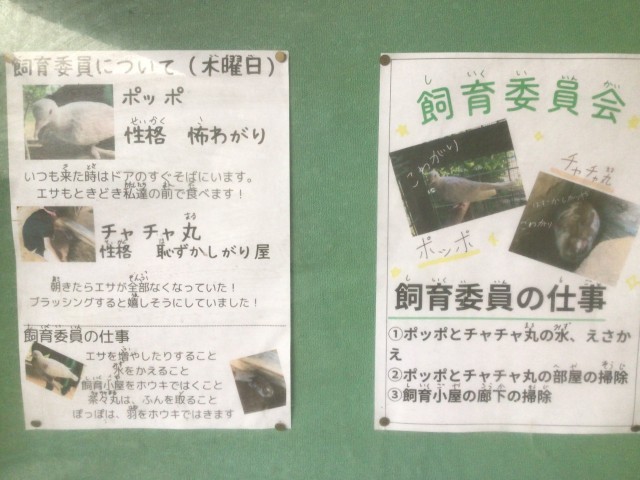 飼育委員について（木曜日）
ポッポ
性格　怖わがり
いつも来た時はドアのすぐそばにいます。
エサもときどき私達の前で食べます！
チャチャ丸
性格　恥ずかしがり屋
朝きたらエサが全部なくなっていた！
ブラッシングすると嬉しそうにしていました！
飼育委員の仕事
エサを増やしたりすること
水をかえること
飼育小屋をホウキではくこと
茶々丸は、ふんを取ること
ぽっぽは、羽をホウキではきます
飼育委員会
こわがり
ポッポ
チャチャ丸
飼育委員の仕事
①ポッポとチャチャ丸の水、えさか
え
②ポッポとチャチャ丸の部屋の掃除
③飼育小屋の廊下の掃除